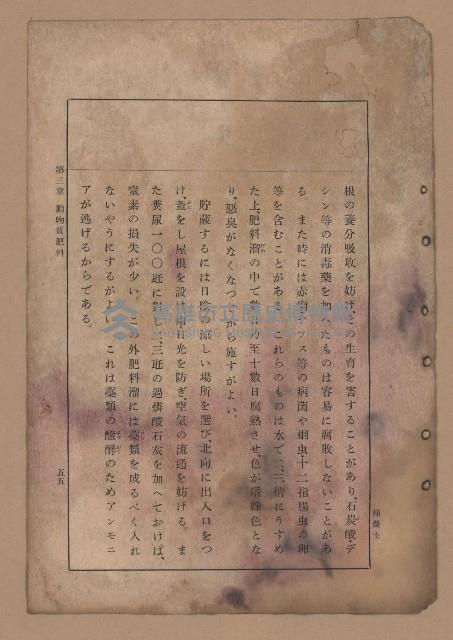 根の養分吸收を妨げ、生育を害することがあり、石炭酸・デ
シン等の消毒藥を加へたものは容易に腐敗しないことがあ
る。また時には赤痢・チフス等の病菌や蛔虫・十二指腸虫の卵
等を含むことがある。これらのものは水で二、三倍にうすめ
た上、肥料溜の中で數日乃至十數日腐熟させ、色が暗綠色とな
り、惡臭がなくなつてから施すがよい。
貯藏するには日陰の涼しい場所を選び、北向に出入口をつ
け、蓋をし屋根を設け、雨日光を防ぎ、空氣の流通を妨げる。ま
た糞尿一〇〇瓩に對し、三瓩の過燐酸石灰を加へておけば、
窒素の損失が少い。この外肥料溜には藁類を成るべく入れ
ないやうにするがよい。これは藁類の醱酵のためアンモニ
アが逃げるからである。
第三章 動物質肥料
五五
高雄市立歷史博物館
KAOHSIUNG MUSEUM OF HISTORY